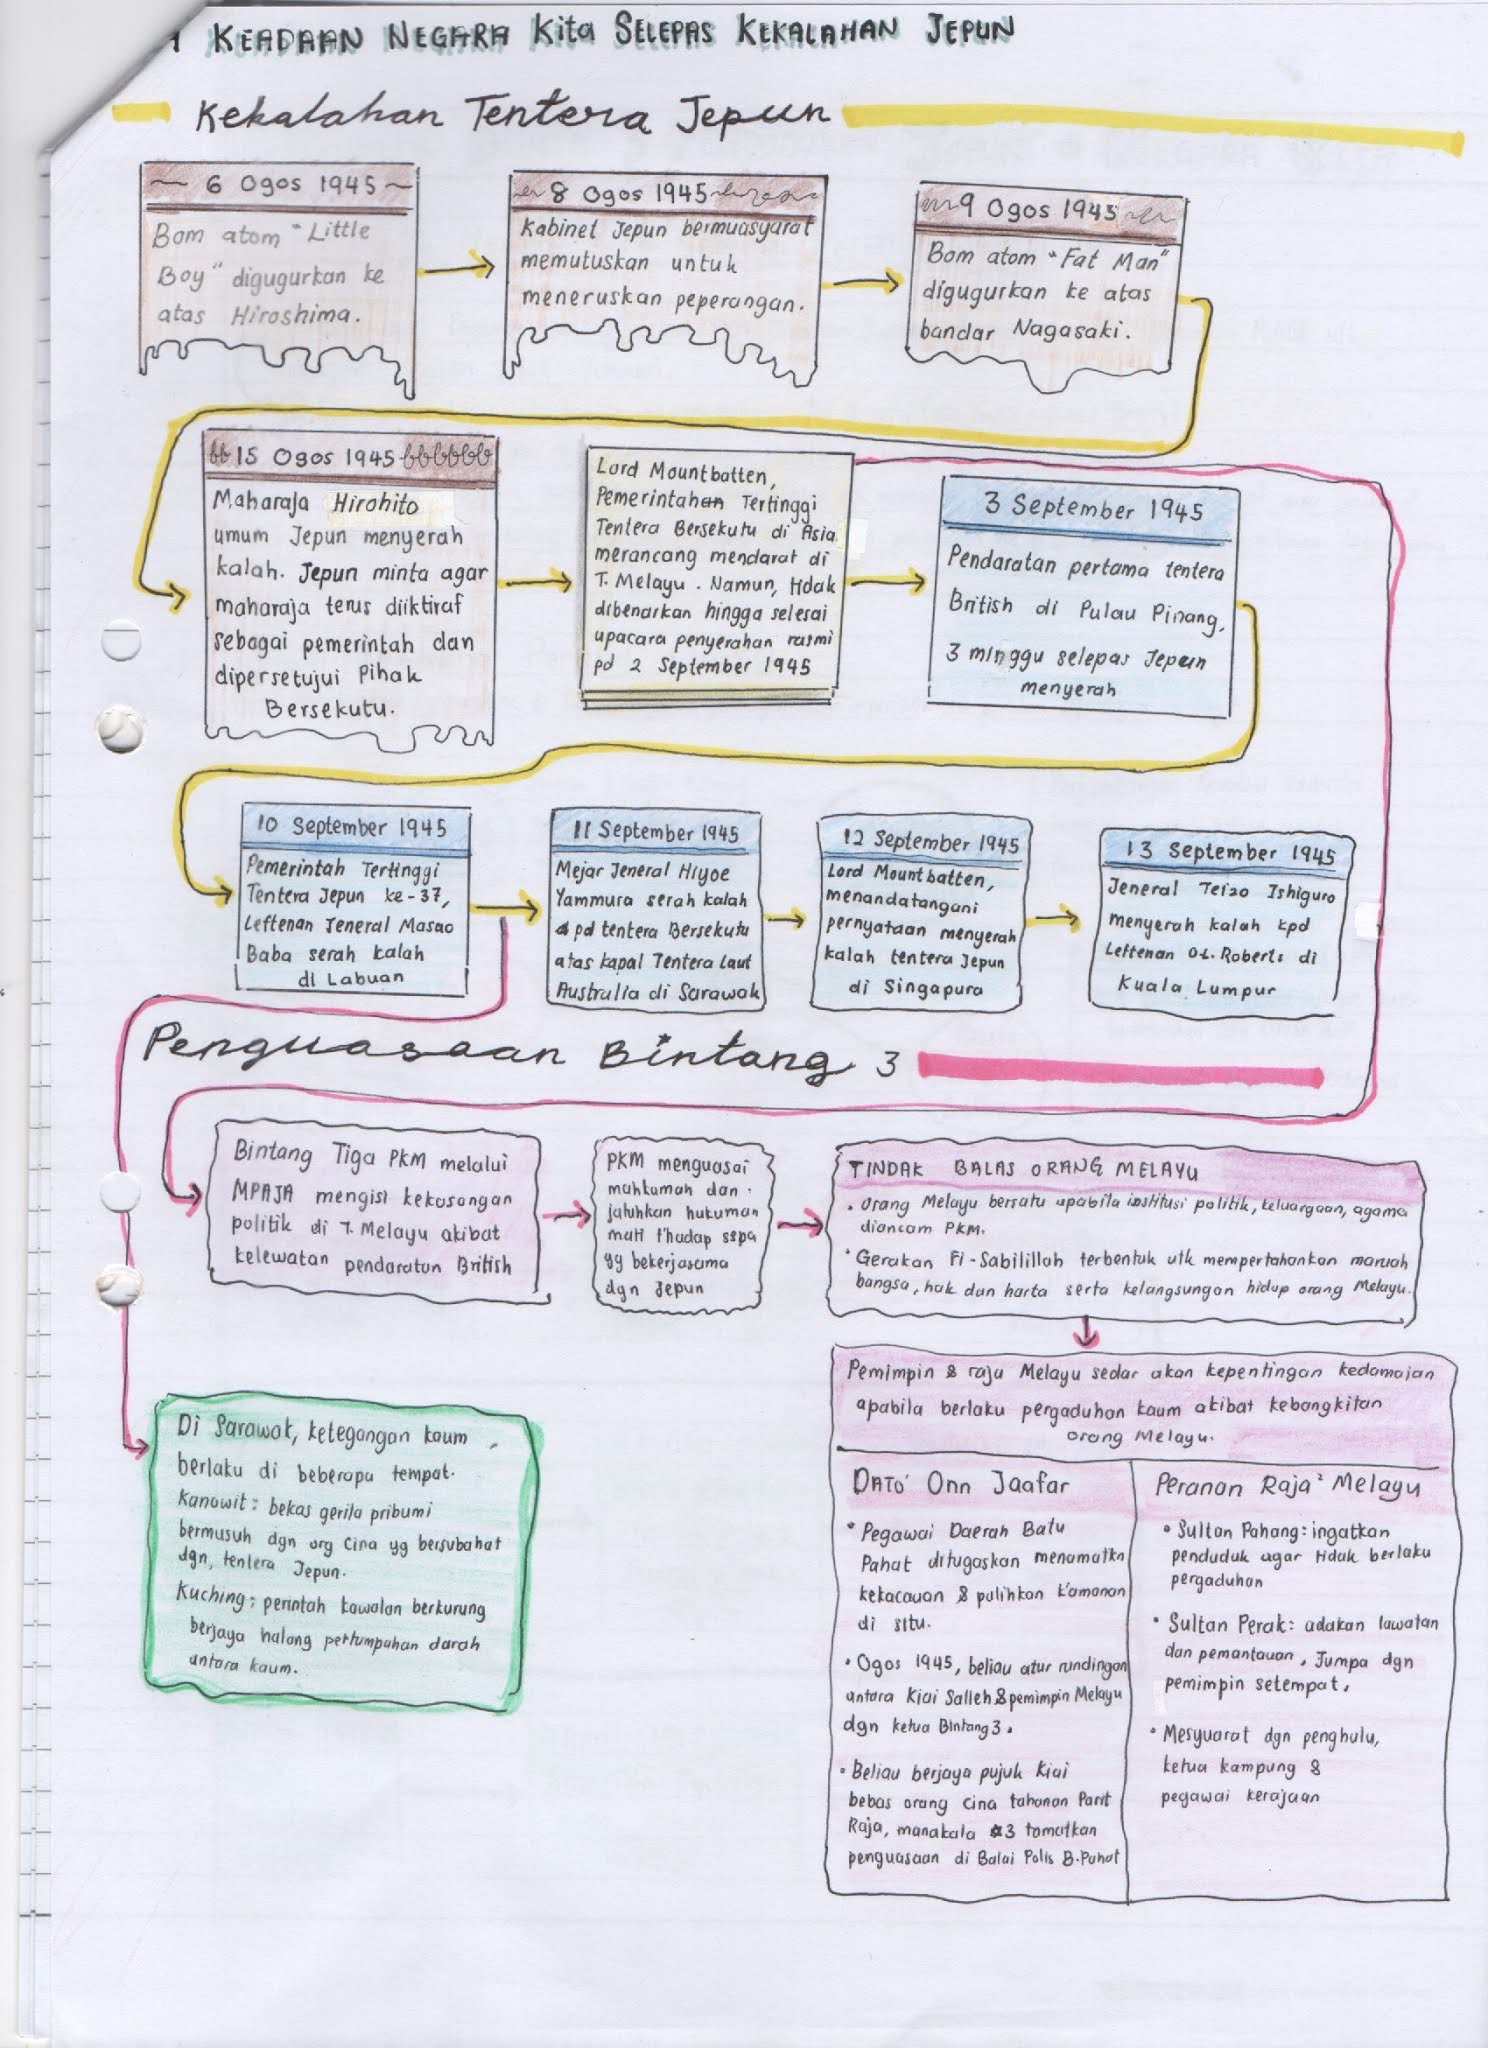 KEADAAN NEGARA Kita SELEPAS KEKALAHAN JEPUN
Kekalahan Tentera Jepun
6 Ogos 1945
Bom atom "Little
Boy" digugurkan ke
atas Hiroshima.
8 Ogos 1945
Kabinet Jepun bermuasyarat
memutuskan untuk
meneruskan peperangan.
9 Ogos 1945
Bom atom "Fat Man"
digugurkan ke atas
bandar Nagasaki.
15 Ogos 1945
Maharaja Hirohito
umum Jepun menyerah
kalah. Jepun minta agar
maharaja terus diiktiraf
sebagai pemerintah dan
dipersetujui Pihak
Bersekutu.
Lord Mountbatten,
Pemerintahan Tertinggi
Tentera Bersekutu di Asia
merancang mendarat di
T. Melayu. Namun, tidak
dibenarkan hingga selesai
upacara penyerahan rasmi
pd 2 September 1945
3 September 1945
Pendaratan pertama tentera
British di Pulau Pinang,
3 minggu selepas Jepun
menyerah
10 September 1945
Pemerintah Tertinggi
Tentera Jepun ke-37,
Leftenan Jeneral Masao
Baba serah kalah
di Labuan
11 September 1945
Mejar Jeneral Hiyoe
Yammura serah kalah
pd tentera Bersekutu
atas kapal Tentera Laut
Australia di Sarawak
12 September 1945
Lord Mountbatten,
menandatangani
pernyataan menyerah
kalah tentera Jepun
di Singapura
13 September 1945
Jeneral Teizo Ishiguro
menyerah kalah kpd
Leftenan O.L. Roberts di
Kuala Lumpur
Penguasaan Bintang 3
Bintang Tiga PKM melalui
MPAJA mengisi kekosongan
politik di T. Melayu akibat
kelewatan pendaratan British
PKM menguasai
mahkamah dan
jatuhkan hukuman
mati t'hadap sspa
yg bekerjasama
dgn Jepun
TINDAK BALAS ORANG MELAYU
• Orang Melayu bersatu apabila institusi politik, keluargaan, agama
diancam PKM.
• Gerakan Fi-Sabilillah terbentuk utk mempertahankan maruah
bangsa, hak dan harta serta kelangsungan hidup orang Melayu.
Pemimpin & raja Melayu sedar akan kepentingan kedamaian
apabila berlaku pergaduhan kaum akibat kebangkitan
orang Melayu.
Di Sarawak, ketegangan kaum
berlaku di beberapa tempat.
Kanowit: bekas gerila pribumi
bermusuh dgn org Cina yg bersubahat
dgn, tentera Jepun.
Kuching: perintah kawalan berkurung
berjaya halang pertumpahan darah
antara kaum.
DATO' Onn Jaafar
• Pegawai Daerah Batu
Pahat ditugaskan menamatkn
kekacauan & pulihkan k'amanan
di situ.
• Ogos 1945, beliau atur rundingan
antara Kiai Salleh & pemimpin Melayu
dgn ketua Bintang 3.
• Beliau berjaya pujuk Kiai
bebas orang Cina tahanan Parit
Raja, manakala ☆3 tamatkan
penguasaan di Balai Polis B.Pahat
Peranan Raja² Melayu
• Sultan Pahang: ingatkan
penduduk agar tidak berlaku
pergaduhan
• Sultan Perak: adakan lawatan
dan pemantauan. Jumpa dgn
pemimpin setempat.
• Mesyuarat dgn penghulu,
ketua kampung &
pegawai kerajaan